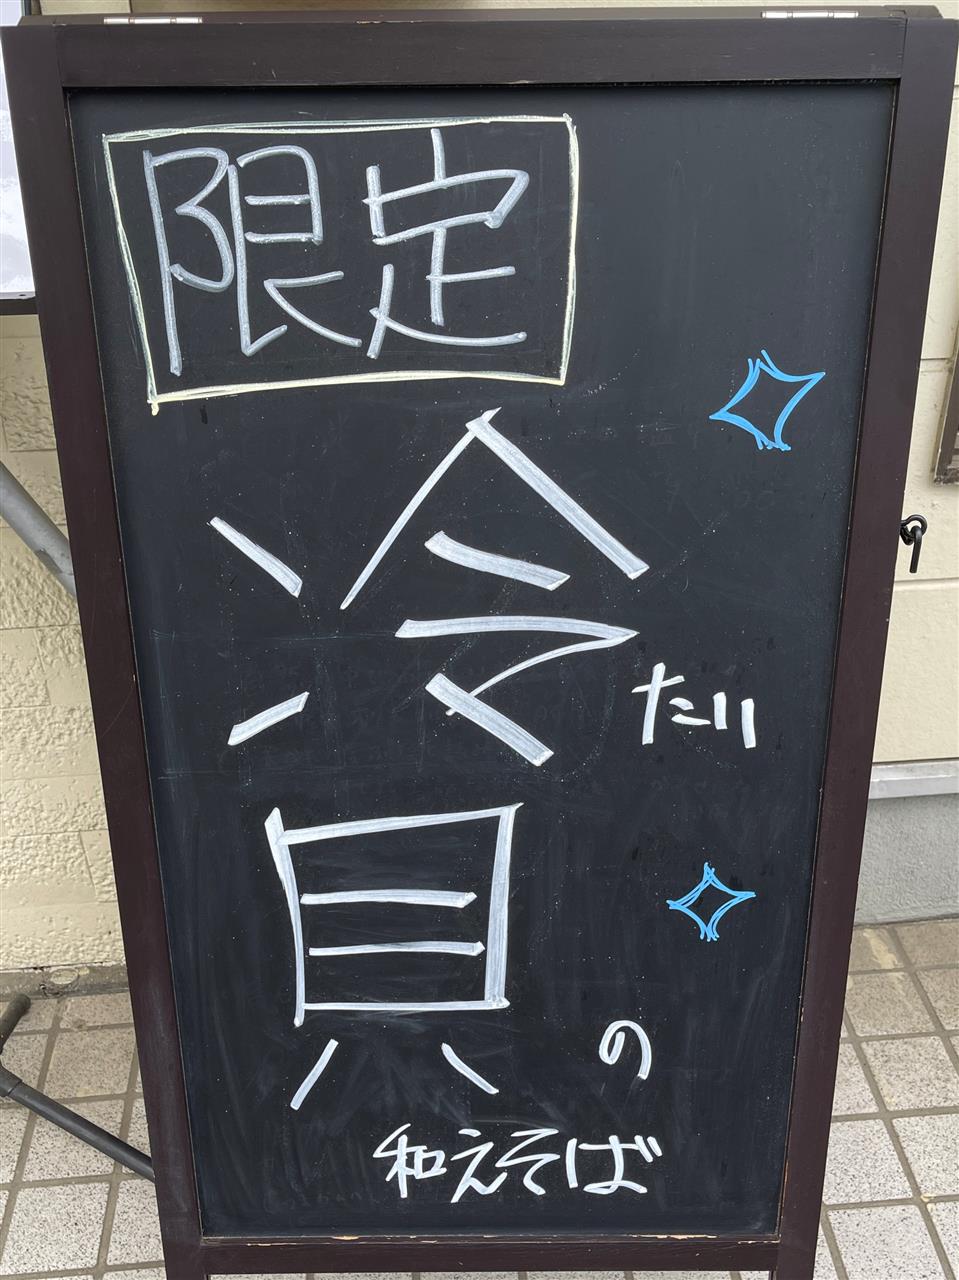 限定
冷たい
貝の
和えそば